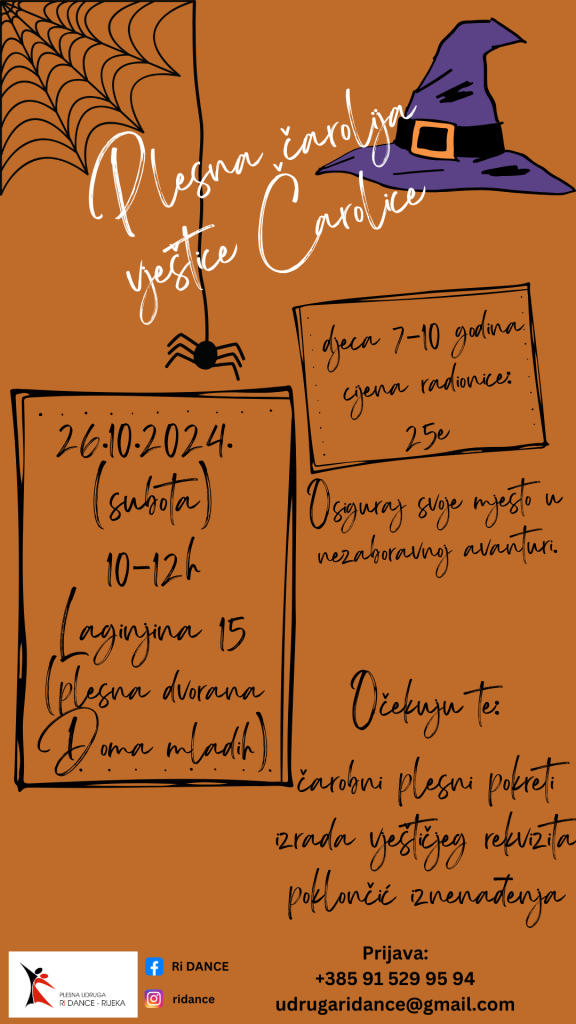 Plesna čarolija
vještice Čarolice
djeca 7-10 godina
cijena radionice:
25e
26.10.2024.
(subota)
10-12h
Laginjina 15
(plesna dvorana
Doma mladih)
Osiguraj svoje mjesto u
nezaboravnoj avanturi.
Očekuju te:
čarobni plesni pokreti
izrada vještičjeg rekvizita
poklončić iznenađenja
PLESNA UDRUGA
Ri DANCE - RIJEKA
Ri DANCE
ridance
Prijava:
+385 91 529 95 94
udrugaridance@gmail.com